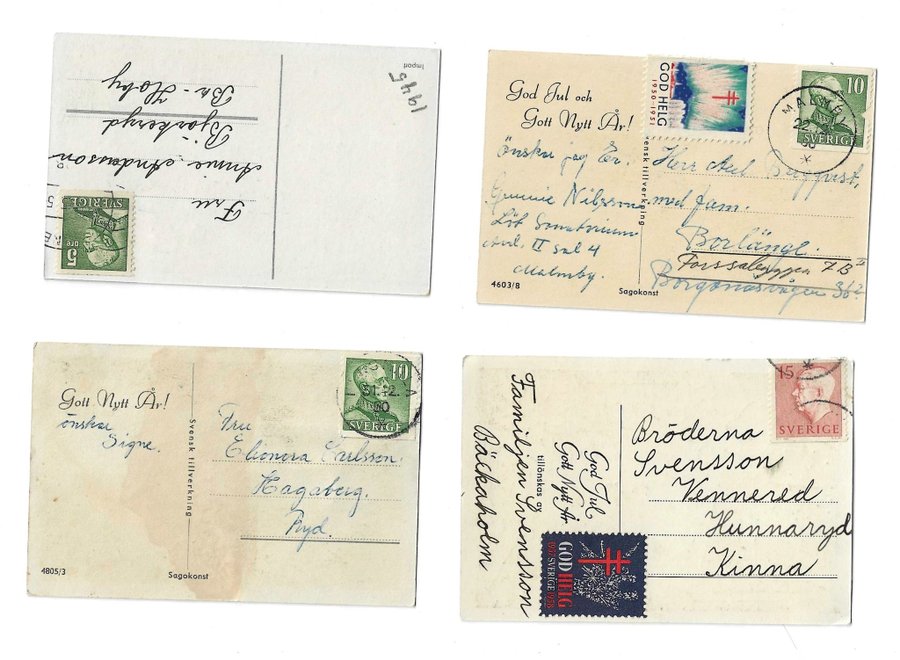 Import
1945
Fru
Annie Andersson
Bjärkeryd
Br-Hoby
5 ÖRE
SVERIGE
God Jul och
Gott Nytt År!
önskar jag Er.
Gunnie Nilsson
Löt Sanatorium
avd. II sal 4
Malmby.
4603/8
Svensk tillverkning
Sagokonst
GOD HELG
1950-1951
10
SVERIGE
MALMBY
22
50
Herr Axel
med fam.
Borlänge.
7B
Borganäsvägen 36
Gott Nytt År!
önskar
Signe.
4805/3
Svensk tillverkning
Sagokonst
10
SVERIGE
31.12.
Fru
Elionora Carlsson.
Hagaberg.
Ryd.
God Jul
Gott Nytt År
tillönskas av
Familjen Svensson
Bäckaholm
GOD HELG
SVERIGE 1958
15
SVERIGE
Bröderna
Svensson
Vennered
Hunnaryd
Kinna